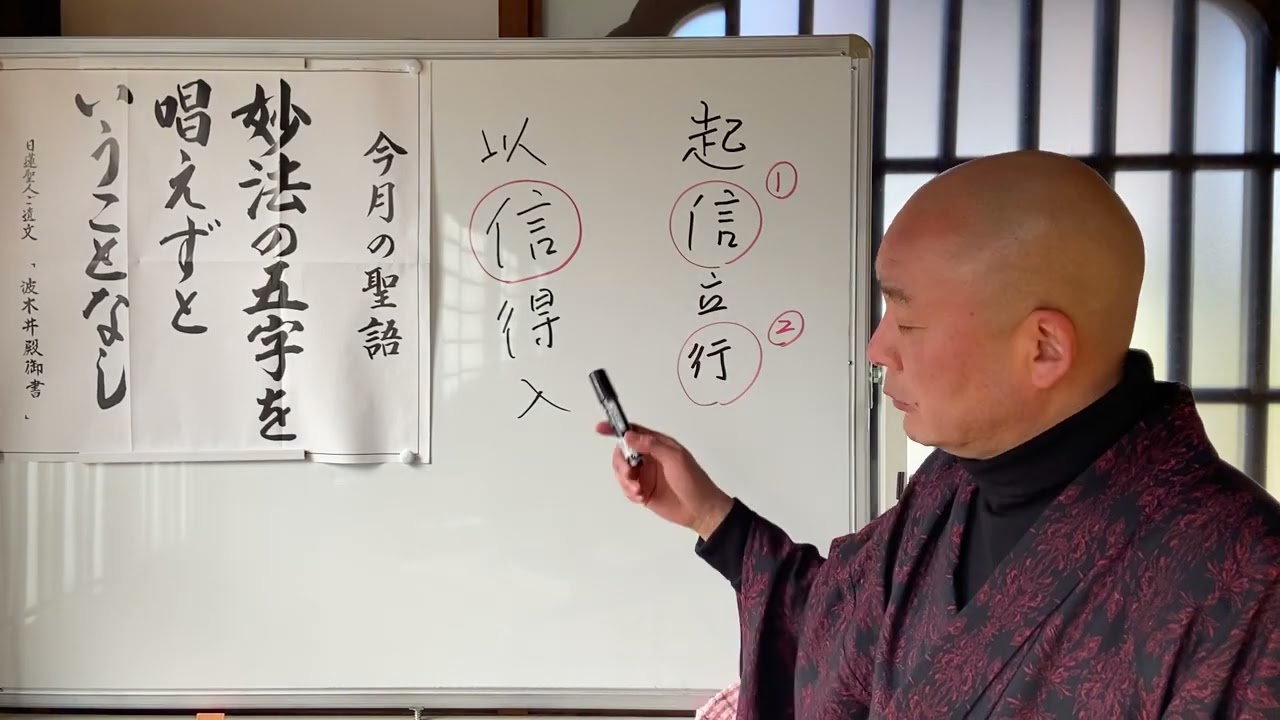 起信立行
①
②
以信得入
今月の聖語
妙法の五字を
唱えずと
いうことなし
日蓮聖人ご遺文「波木井殿御書」